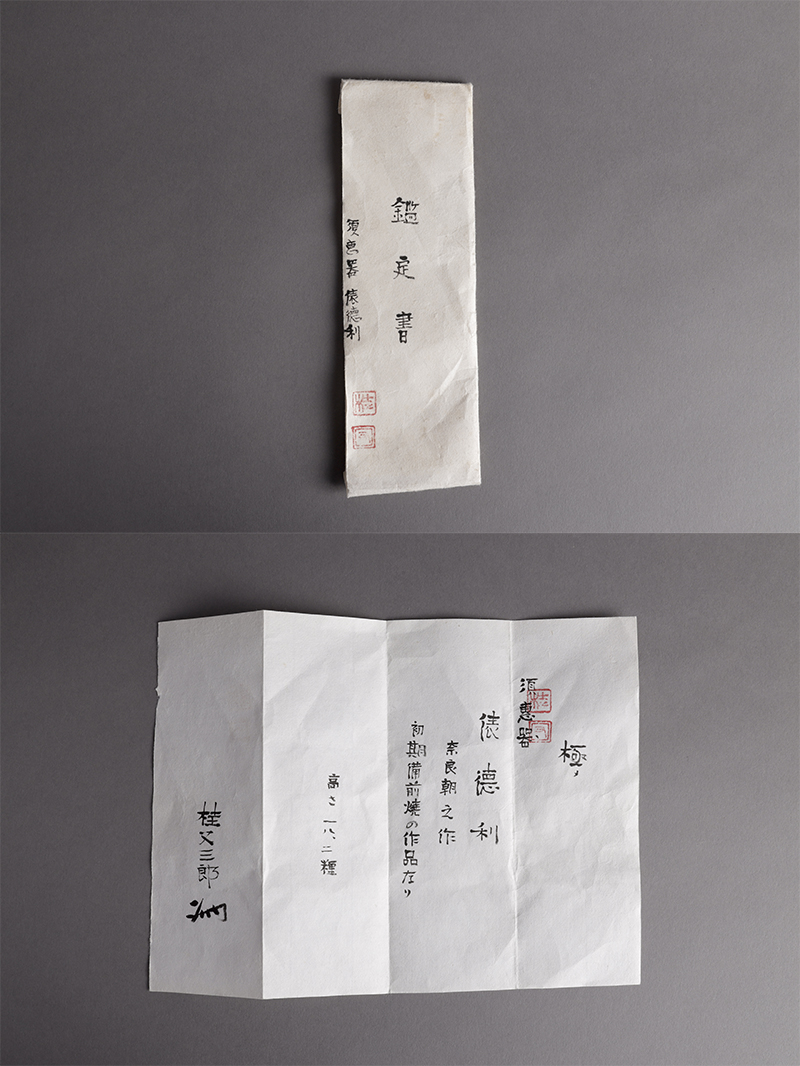 鑑定書
須恵器 俵徳利
極ノ
須惠器
俵德利
奈良朝之作
初期備前燒の作品在リ
高さ 一八、二糎
桂又三郎